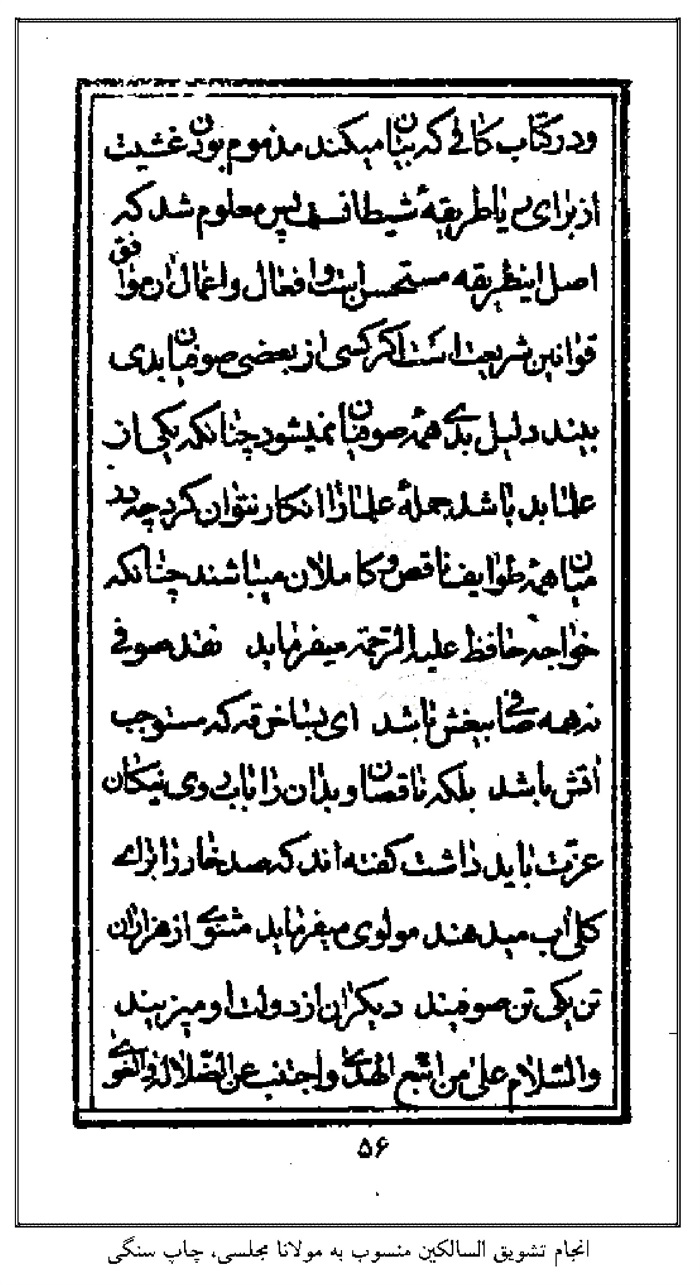 ودر کتاب کافی که بیان میکند مذموم بودن غشیت
از برای ریا طریقهٔ شیطانست پس معلوم شد که
اصل اینطریقه مستحسن است و افعال و اعمال آن موافق
قوانین شریعت است اکر کسی از بعضی صوفیان بدی
بیند دلیل بدی همهٔ صوفیان نمیشود چنانکه یکی از
علما بد باشد جملهٔ علما را انکار نتوان کرد چه در
میان همهٔ طوایف ناقص و کاملان میباشند چنانکه
خواجه حافظ علیه الرحمة میفرماید نقد صوفی
نه همه صافی بیغش باشد ای بسا خرقه که مستوجب
آتش باشد بلکه ناقصان و بدان را باب روی نیکان
عزت باید داشت کفته اند که صد خار را برای
کلی آب میدهند مولوی میفرماید مثنوی از هزاران
تن یکی تن صوفیند دیکران از دولت او میزیند
والسلام علی من اتبع الهدی واجتنب عن الضلالة والغوی
۵۶
انجام تشویق السالکین منسوب به مولانا مجلسی، چاپ سنگی